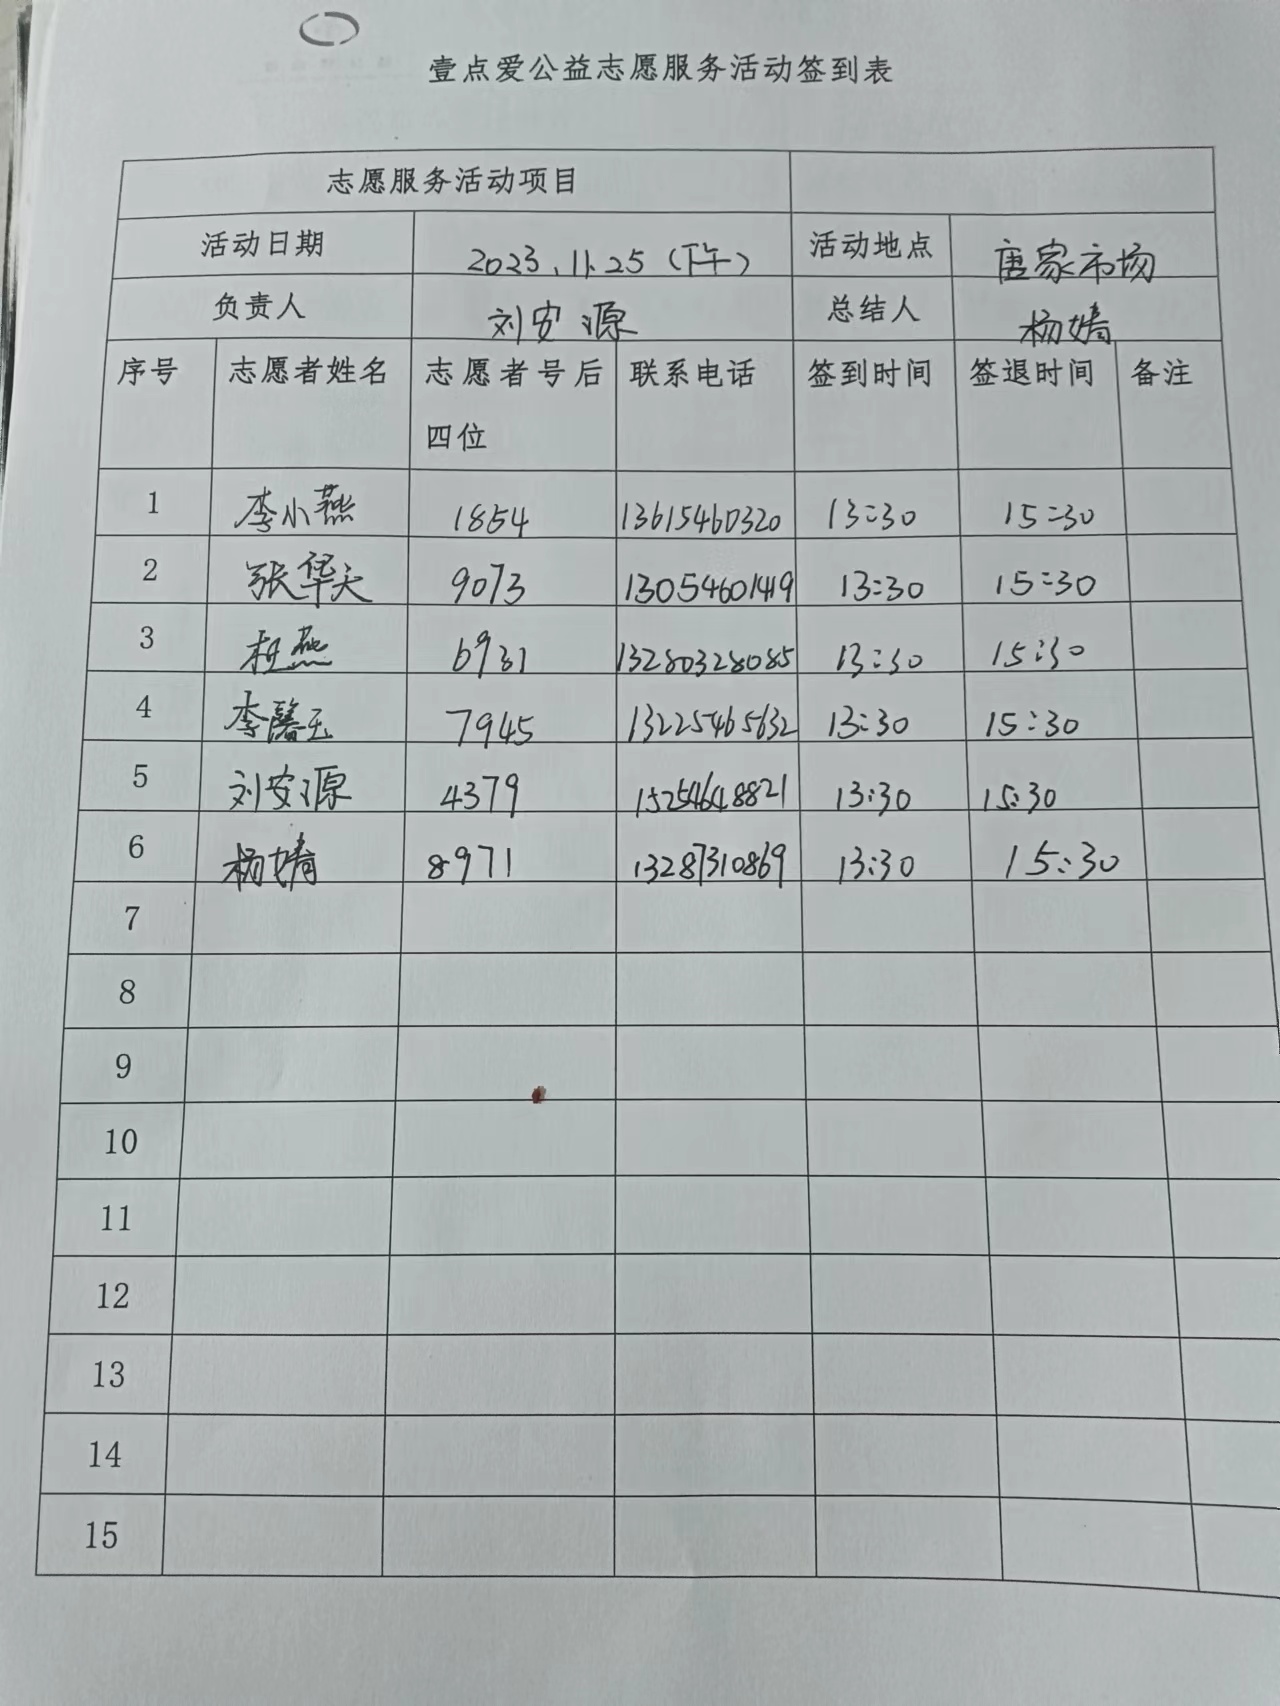 壹点爱公益志愿服务活动签到表
志愿服务活动项目
活动日期 2023.11.25（下午） 活动地点 唐家市场
负责人 刘安源 总结人 杨婧
序号 志愿者姓名 志愿者号后四位 联系电话 签到时间 签退时间 备注
1 李小燕 1854 13615460320 13:30 15:30
2 张华天 9073 13054601419 13:30 15:30
3 杜燕 6931 13280328085 13:30 15:30
4 李馨玉 7945 13225465632 13:30 15:30
5 刘安源 4379 15254648821 13:30 15:30
6 杨婧 8971 13287310869 13:30 15:30
7
8
9
10
11
12
13
14
15